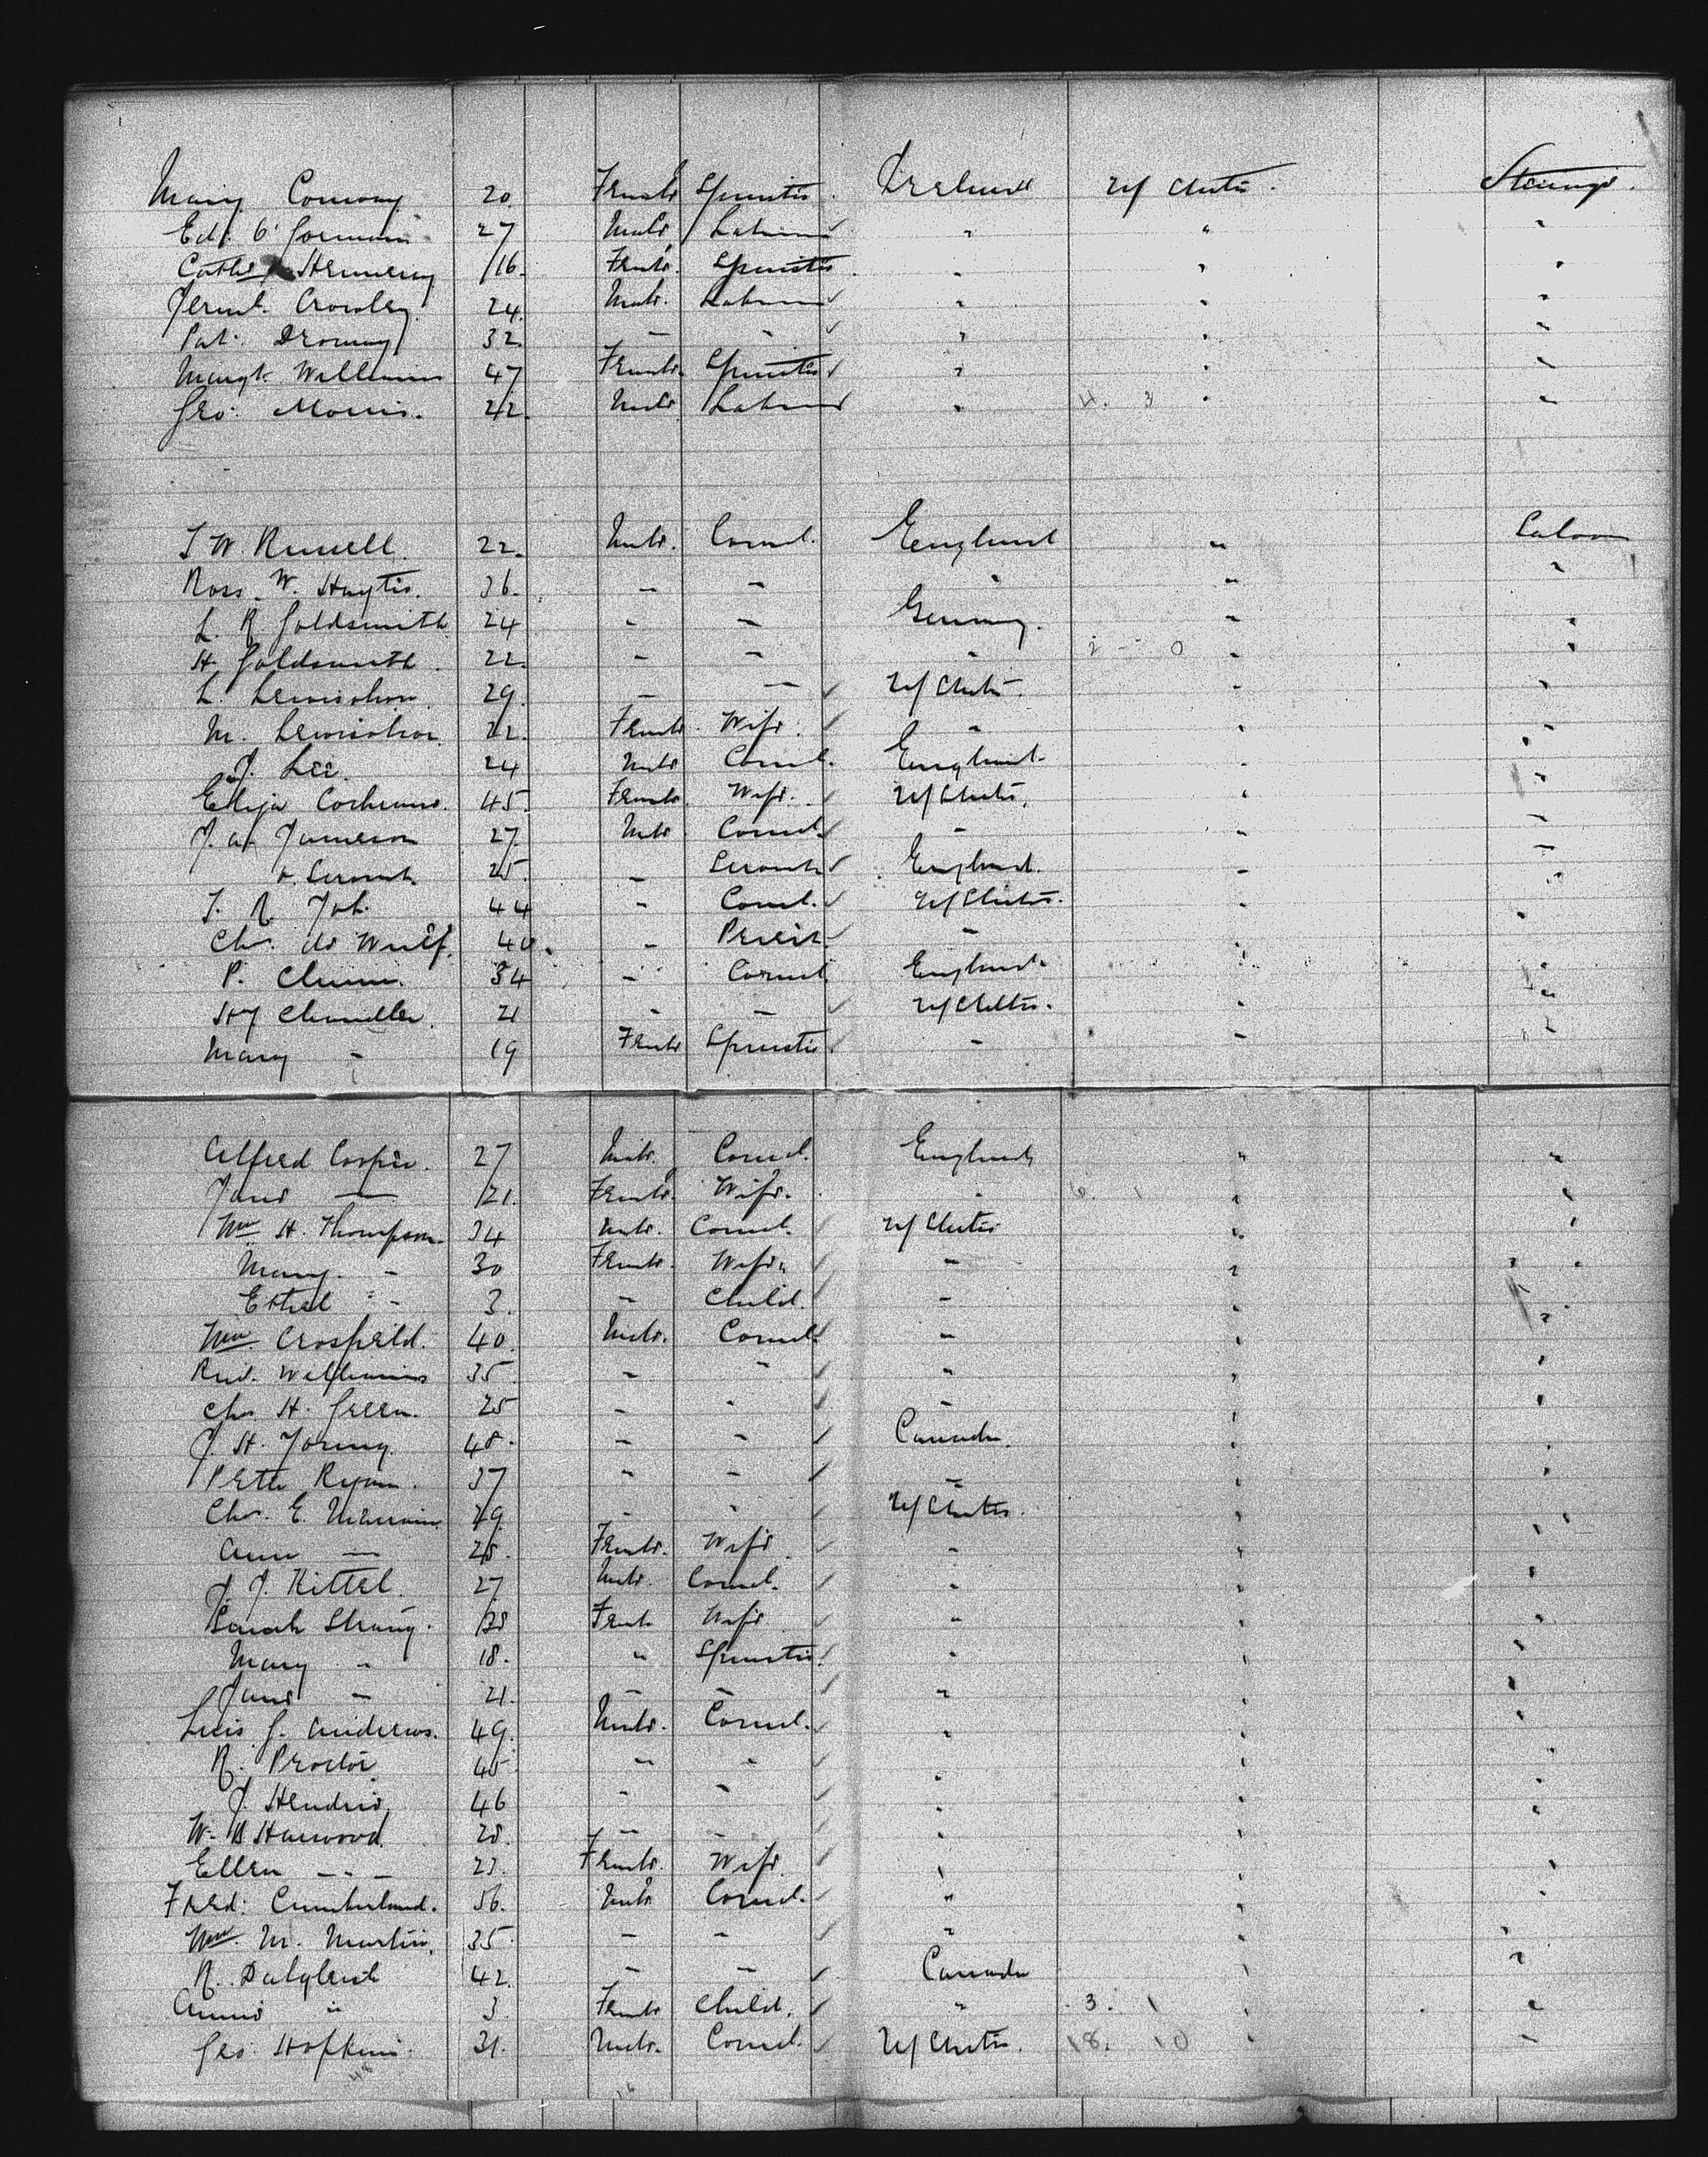 Mary Conway 20 Female Spinster Ireland U/States Steerage
Edd. O'Gorman 27 Male Laborer " " "
Cathe. Hennessy 16 Female Spinster " " "
Jeremh. Crowley 24 Male Laborer " " "
Pat. 32 " " " " "
Margt. Williams 47 Female Spinster " " "
Geo. Morris 22 Male Laborer " 4. 3 " "
T W. Russell 22 Male Comml. England " Saloon
Ross. W. 36 " " " " "
L. R Goldsmith 24 " " Germany " "
H. Goldsmith 22 " " " 2 - 0 " "
L. Lewisohn 29 " " U/States " "
M. Lewisohn 22 Female Wife " " "
J. Lee 24 Male Comml. England " "
Eliza Cochrane 45 Female Wife U/States " "
J. A. Jameson 27 Male Comml. " " "
& Servant 25 " Servant England " "
T. R. Job 44 " Comml. U/States " "
Chs. de Wulf 40 " " " "
P. 34 " Comml England " "
Hy Chandler 21 " " U/States " "
Mary " 19 Female Spinster " " "
Alfred Cooper 27 Male Comml. England " "
Jane — 21 Female Wife " 6. 1 " "
Wm. H. Thompson 34 Male Comml. U/States " "
Mary " 30 Female Wife " " "
Ethel " 3 " Child " " "
Wm. Crosfield 40 Male Comml. " " "
Rd. Williams 35 " " " " "
Chs. H. Green 25 " " " " "
J. H. Young 48 " " Canada " "
Peter Ryan 37 " " " " "
Chs. E. 49 " " U/States " "
Ann — 25 Female Wife " " "
J. J. Kittel 27 Male Comml. " " "
Sarah Strang 38 Female Wife " " "
Mary " 18 " Spinster " " "
Jane " 21 " " " " "
G. Andrews 49 Male Comml. " " "
R. Proctor 45 " " " " "
J. Hendrie 46 " " " " "
W. B Harwood 28 " " " " "
Ellen — 23 Female Wife " " "
Fred: Cumberland 56 Male Comml. " " "
Wm. M. Martin 35 " " " " "
R. Dalgleish 42 " " Canada " "
Annie " 3 Female Child " 3. 1 " "
Geo. Hopkins 31 Male Comml. U/States 18. 10 " "